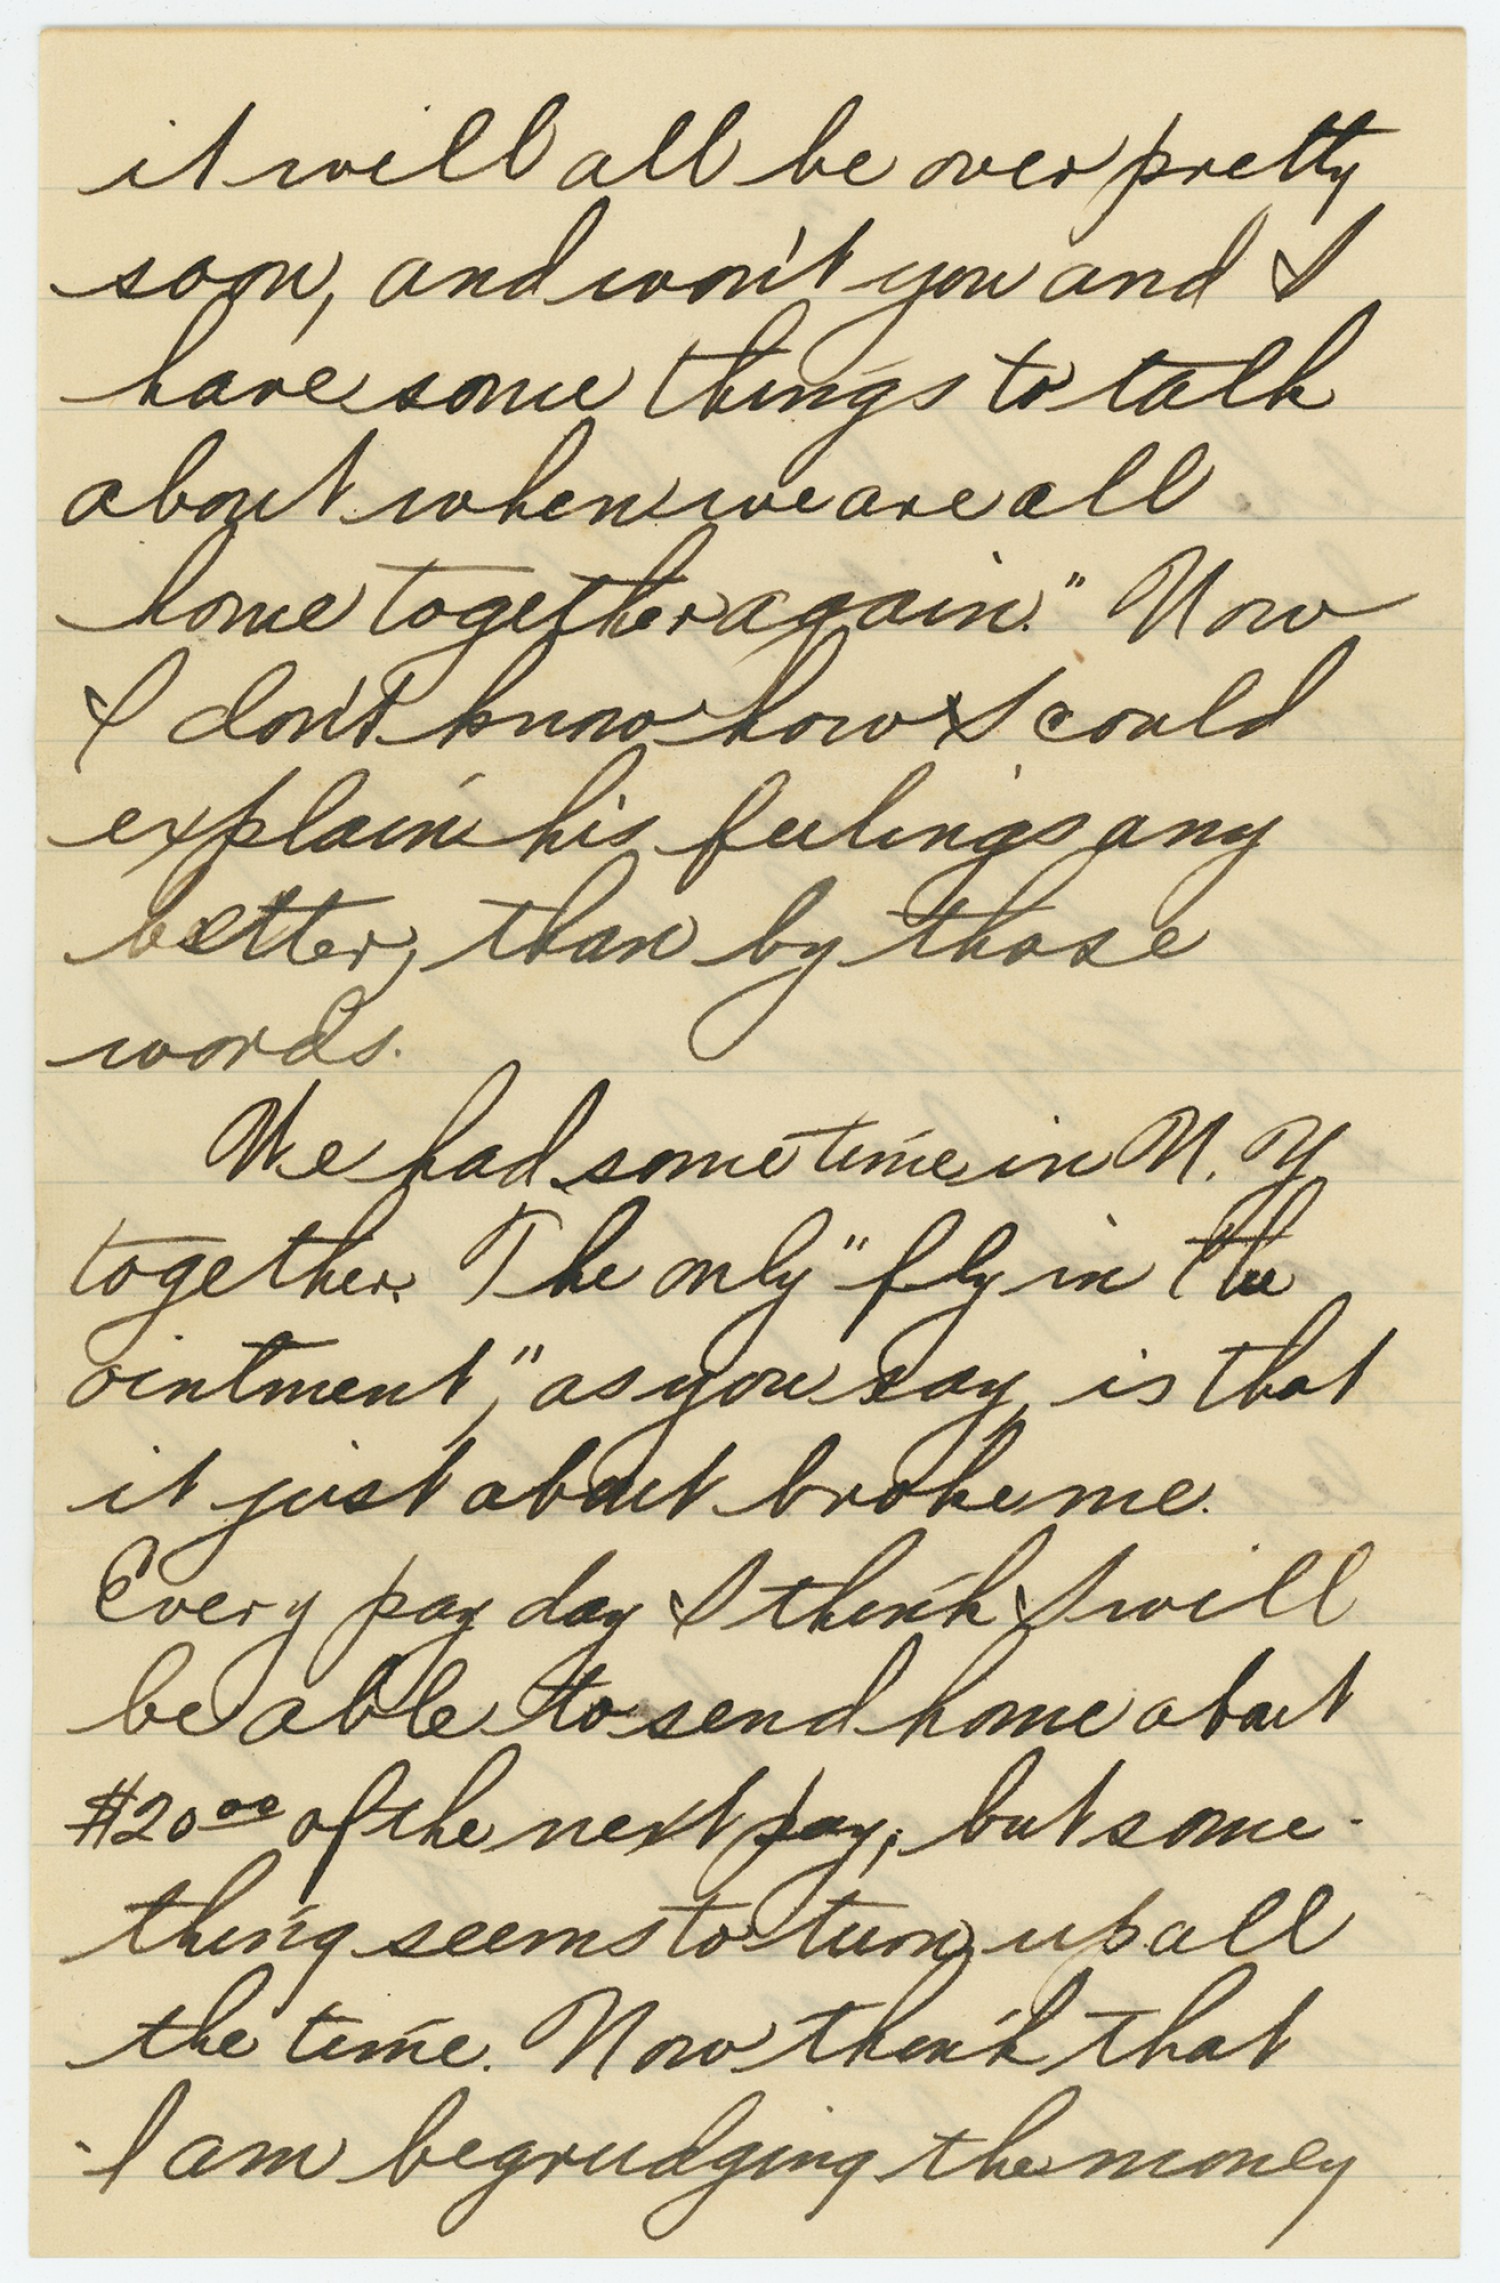 it will all be over pretty
soon, and won't you and I
have some things to talk
about when we are all
home together again." Now
I don't know how I could
explain his feelings any
better, than by those
words.
We had some time in N. Y.
together. The only "fly in the
ointment," as you say, is that
it just about broke me.
Every pay day I think I will
be able to send home about
$20.00 of the next pay; but some-
thing seems to turn up all
the time. Now think that
I am begrudging the money